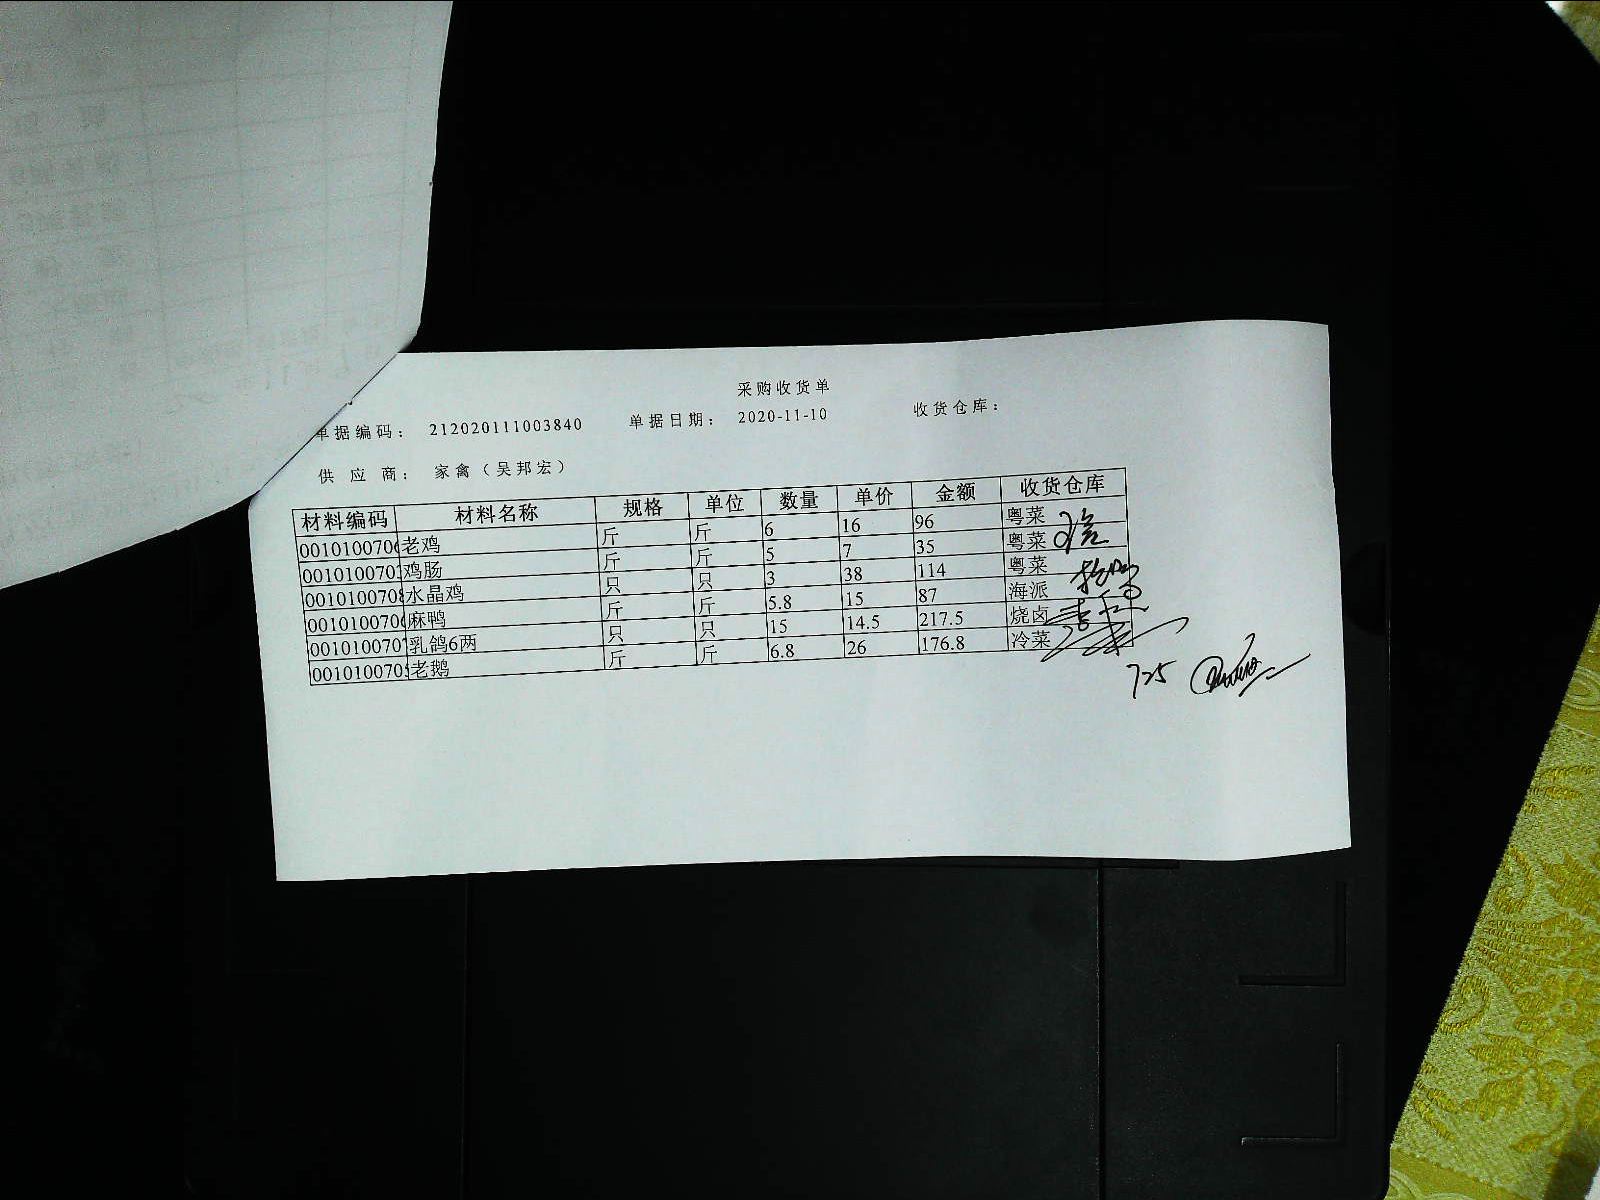 采购收货单
单据编码： 212020111003840 单据日期： 2020-11-10 收货仓库：
供 应 商： 家禽（吴邦宏）
材料编码 材料名称 规格 单位 数量 单价 金额 收货仓库
0010100706 老鸡 斤 斤 6 16 96 粤菜
001010070 鸡肠 斤 斤 5 7 35 粤菜
0010100708 水晶鸡 只 只 3 38 114 粤菜
001010070 麻鸭 斤 斤 5.8 15 87 海派
0010100707 乳鸽6两 只 只 15 14.5 217.5 烧卤
001010070 老鹅 斤 斤 6.8 26 176.8 冷菜
725